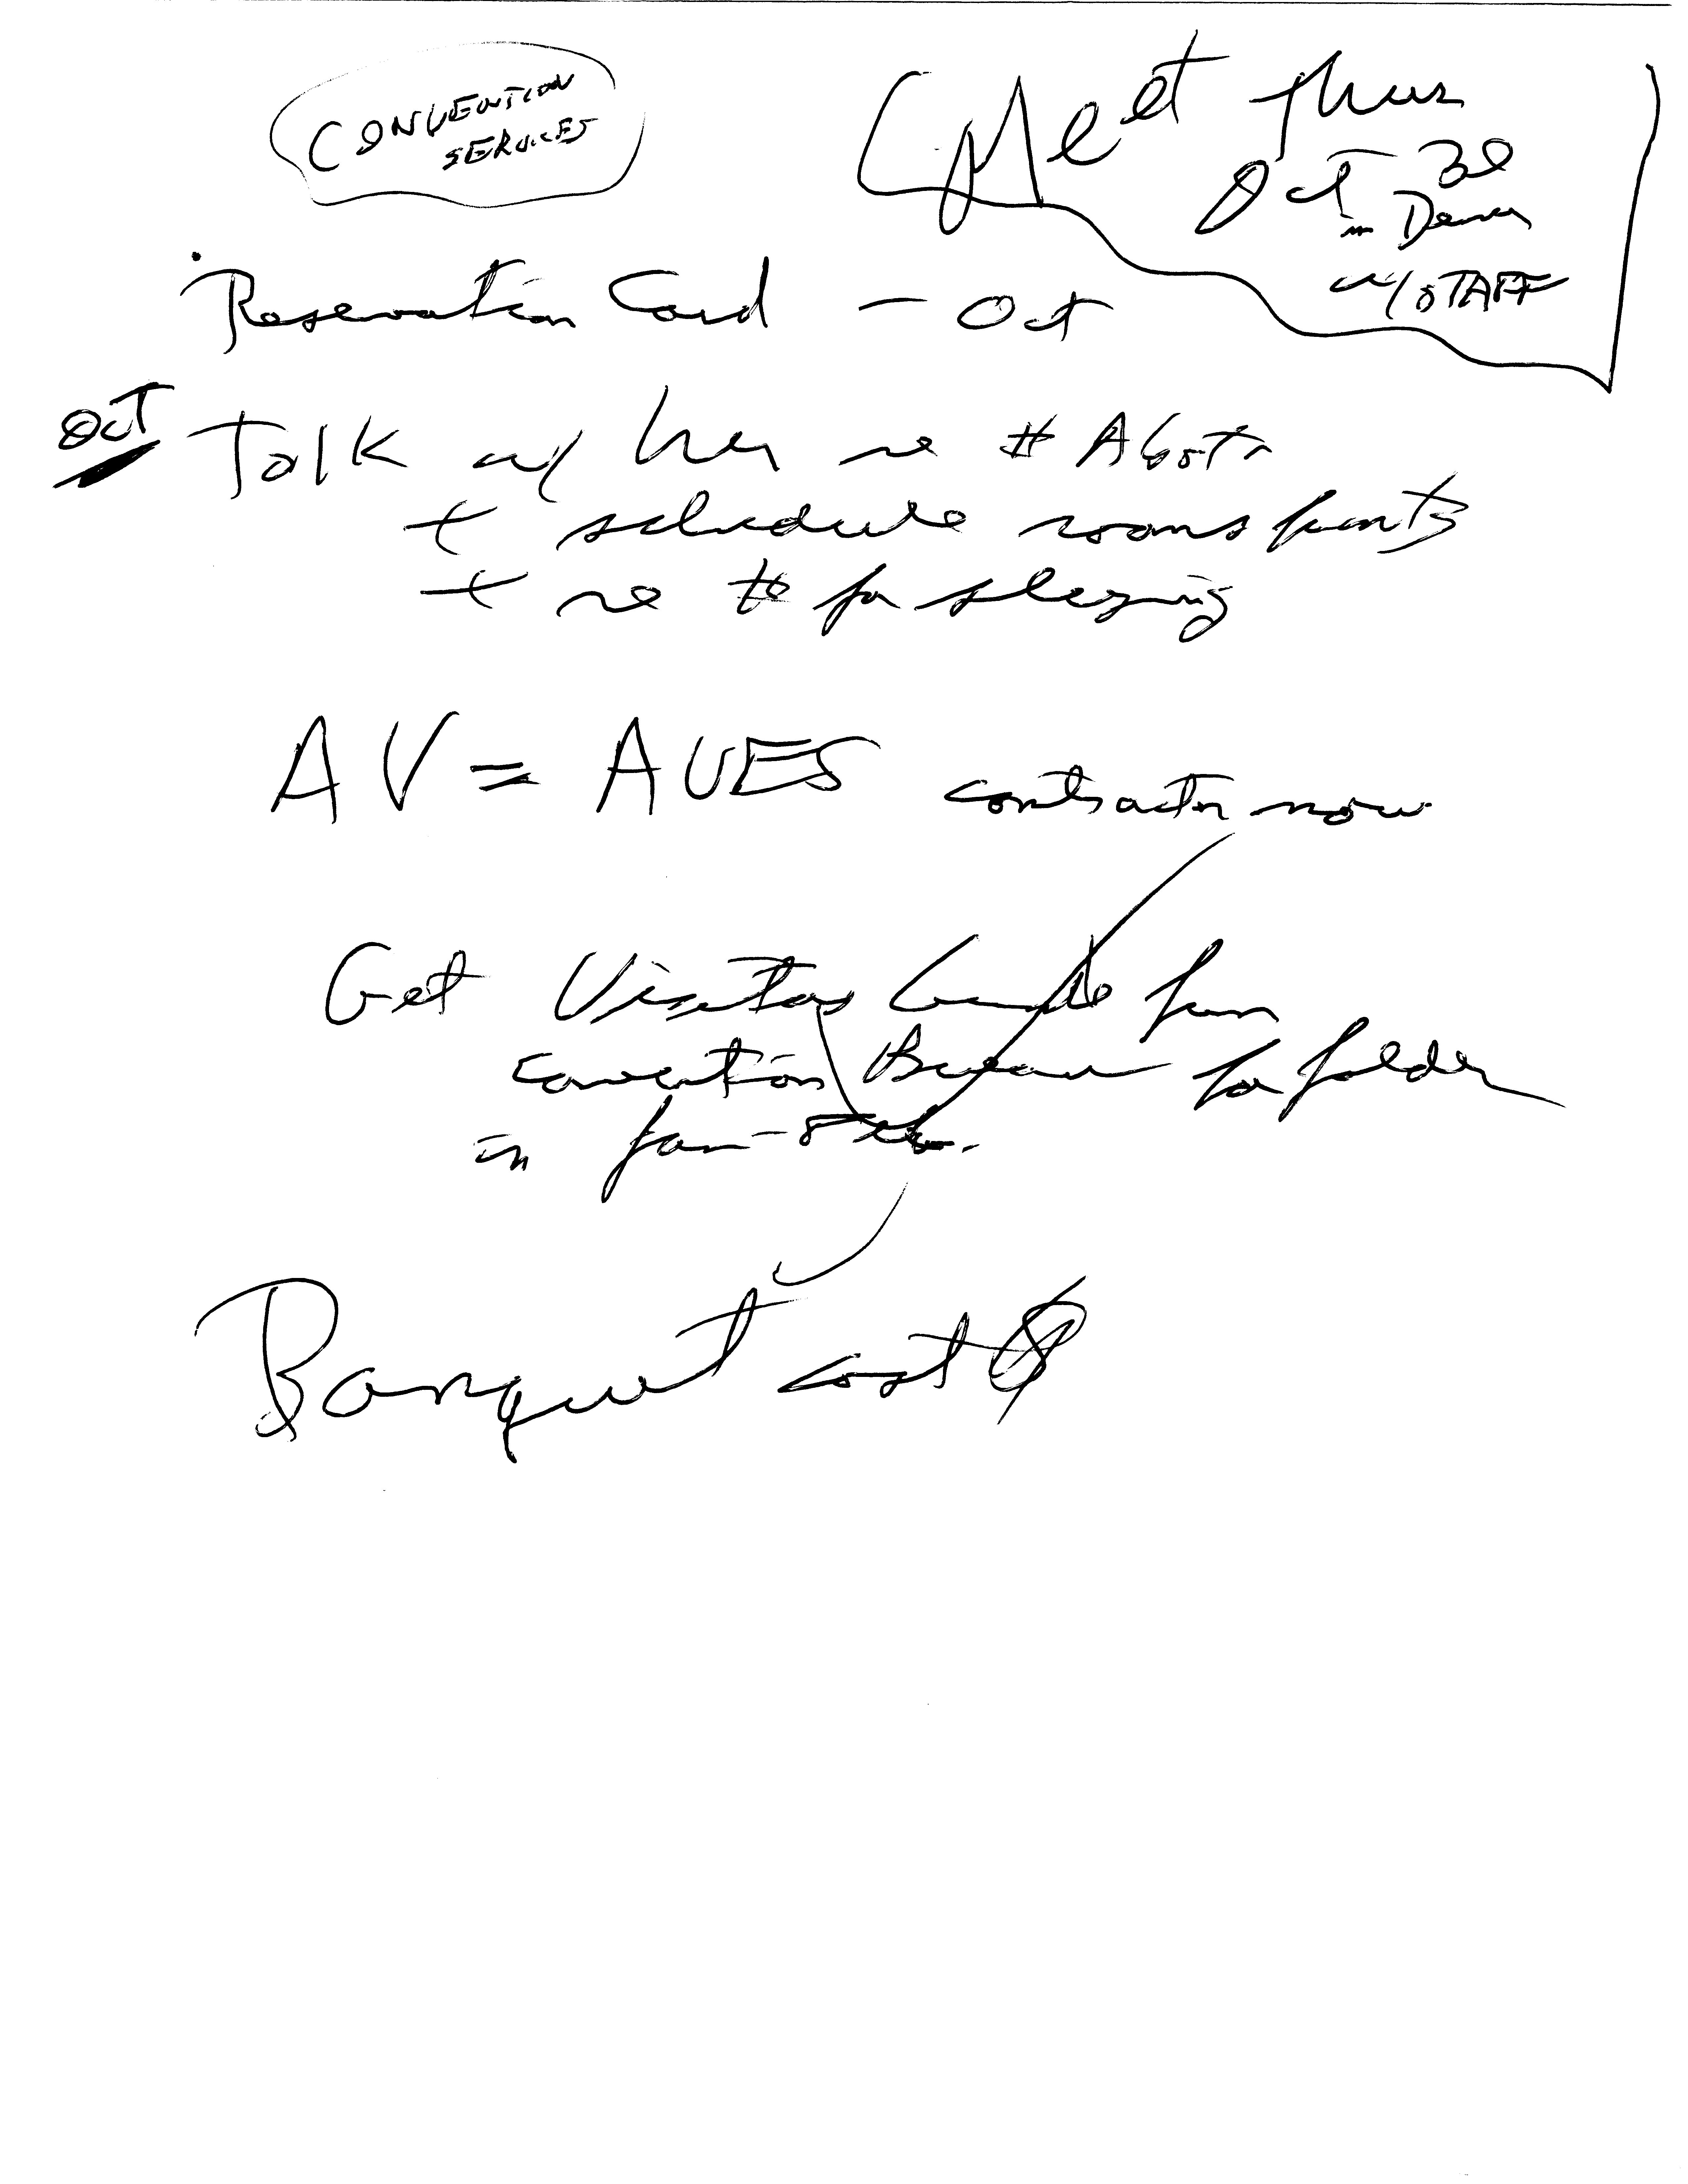 CONVENTION
SERVICES
Meet Thur
Oct 30
in Denver
w/ STAFF
Reservation Card - Oct
OCT Talk w/ her re # Abstr
+ schedule rooms
+ re # for sleeping
AV = AVES contractor now
Get Visitors Guide from
convention Bureau for folder
in Jan-Feb.
Banquet cost $